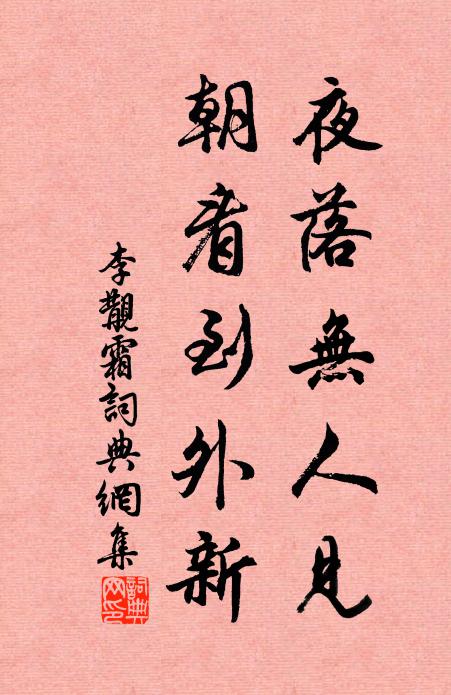 夜落無人見
朝看到外新
李觀霜詞典網集
詞典網印